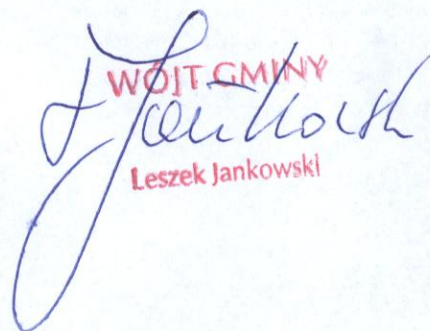 WÓJT GMINY
Jankowski
Leszek Jankowski